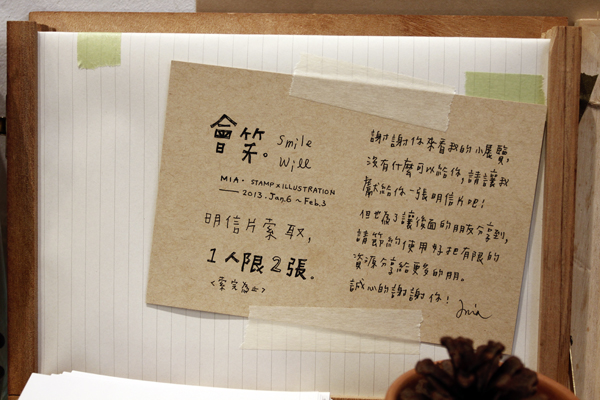 會笑。
Smile
Will
MIA. STAMP×ILLUSTRATION
2013.Jan.6~Feb.3
明信片索取,
1人限2張。
<索完為止>
謝謝你來看我的小展覽,
沒有什麼可以給你,請讓我
獻給你一張明信片吧!
但也為了讓後面的朋友分享到,
請節約使用好把有限的
資源分享給更多的朋。
誠心的謝謝你!
Mia